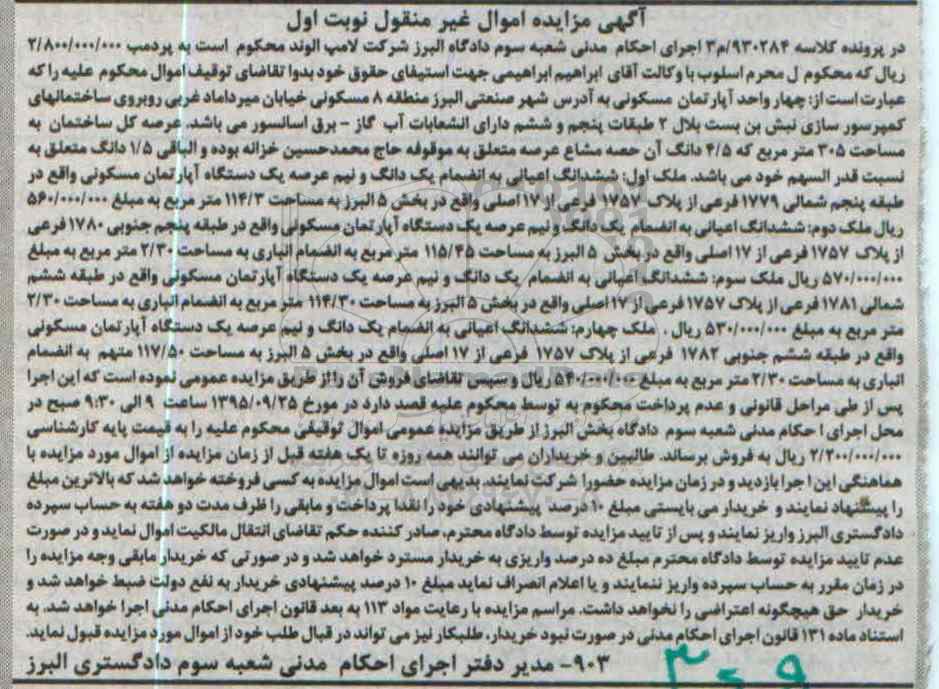 آگهی مزایده اموال غیر منقول نوبت اول
در پرونده کلاسه ۹۳۰۲۸۴/م۳ اجرای احکام مدنی شعبه سوم دادگاه البرز شرکت لامپ الوند محکوم است به پردمب ۲/۸۰۰/۰۰۰/۰۰۰
ریال که محکوم ل محرم اسلوب با وکالت آقای ابراهیم ابراهیمی جهت استیفای حقوق خود بدوا تقاضای توقیف اموال محکوم علیه را که
عبارت است از: چهار واحد آپارتمان مسکونی به آدرس شهر صنعتی البرز منطقه ۸ مسکونی خیابان میرداماد غربی روبروی ساختمانهای
کمپرسور سازی نبش بن بست بلال ۲ طبقات پنجم و ششم دارای انشعابات آب گاز - برق اسانسور می باشد. عرصه کل ساختمان به
مساحت ۳۰۵ متر مربع که ۴/۵ دانگ آن حصه مشاع عرصه متعلق به موقوفه حاج محمدحسین خزانه بوده و الباقی ۱/۵ دانگ متعلق به
نسبت قدر السهم خود می باشد. ملک اول: ششدانگ اعیانی به انضمام یک دانگ و نیم عرصه یک دستگاه آپارتمان مسکونی واقع در
طبقه پنجم شمالی ۱۷۷۹ فرعی از پلاک ۱۷۵۷ فرعی از ۱۷ اصلی واقع در بخش ۵ البرز به مساحت ۱۱۴/۳ متر مربع به مبلغ ۵۶۰/۰۰۰/۰۰۰
ریال ملک دوم: ششدانگ اعیانی به انضمام یک دانگ و نیم عرصه یک دستگاه آپارتمان مسکونی واقع در طبقه پنجم جنوبی ۱۷۸۰ فرعی
از پلاک ۱۷۵۷ فرعی از ۱۷ اصلی واقع در بخش ۵ البرز به مساحت ۱۱۵/۴۵ متر مربع به انضمام انباری به مساحت ۲/۳۰ متر مربع به مبلغ
۵۷۰/۰۰۰/۰۰۰ ریال ملک سوم: ششدانگ اعیانی به انضمام یک دانگ و نیم عرصه یک دستگاه آپارتمان مسکونی واقع در طبقه ششم
شمالی ۱۷۸۱ فرعی از پلاک ۱۷۵۷ فرعی از ۱۷ اصلی واقع در بخش ۵ البرز به مساحت ۱۱۴/۳۰ متر مربع به انضمام انباری به مساحت ۲/۳۰
متر مربع به مبلغ ۵۳۰/۰۰۰/۰۰۰ ریال . ملک چهارم: ششدانگ اعیانی به انضمام یک دانگ و نیم عرصه یک دستگاه آپارتمان مسکونی
واقع در طبقه ششم جنوبی ۱۷۸۲ فرعی از پلاک ۱۷۵۷ فرعی از ۱۷ اصلی واقع در بخش ۵ البرز به مساحت ۱۱۷/۵۰ متهم به انضمام
انباری به مساحت ۲/۳۰ متر مربع به مبلغ ۵۴۰/۰۰۰/۰۰۰ ریال و سپس تقاضای فروش آن را از طریق مزایده عمومی نموده است که این اجرا
پس از طی مراحل قانونی و عدم پرداخت محکوم به توسط محکوم علیه قصد دارد در مورخ ۱۳۹۵/۰۹/۲۵ ساعت ۹ الی ۹:۳۰ صبح در
محل اجرای ا حکام مدنی شعبه سوم دادگاه بخش البرز از طریق مزایده عمومی اموال توقیفی محکوم علیه را به قیمت پایه کارشناسی
۲/۲۰۰/۰۰۰/۰۰۰ ریال به فروش برساند. طالبین و خریداران می توانند همه روزه تا یک هفته قبل از زمان مزایده از اموال مورد مزایده با
هماهنگی این اجرا بازدید و در زمان مزایده حضورا شرکت نمایند. بدیهی است اموال مزایده به کسی فروخته خواهد شد که بالاترین مبلغ
را پیشنهاد نمایند و خریدار می بایستی مبلغ ۱۰ درصد پیشنهادی خود را نقدا پرداخت و مابقی را ظرف مدت دو هفته به حساب سپرده
دادگستری البرز واریز نمایند و پس از تایید مزایده توسط دادگاه محترم، صادر کننده حکم تقاضای انتقال مالکیت اموال نماید و در صورت
عدم تایید مزایده توسط دادگاه محترم مبلغ ده درصد واریزی به خریدار مسترد خواهد شد و در صورتی که خریدار مابقی وجه مزایده را
در زمان مقرر به حساب سپرده واریز ننمایند و یا اعلام انصراف نماید مبلغ ۱۰ درصد پیشنهادی خریدار به نفع دولت ضبط خواهد شد و
خریدار حق هیچگونه اعتراضی را نخواهد داشت. مراسم مزایده با رعایت مواد ۱۱۳ به بعد قانون اجرای احکام مدنی اجرا خواهد شد. به
استناد ماده ۱۳۱ قانون اجرای احکام مدنی در صورت نبود خریدار، طلبکار نیز می تواند در قبال طلب خود از اموال مورد مزایده قبول نماید.
۹۰۳- مدیر دفتر اجرای احکام مدنی شعبه سوم دادگستری البرز